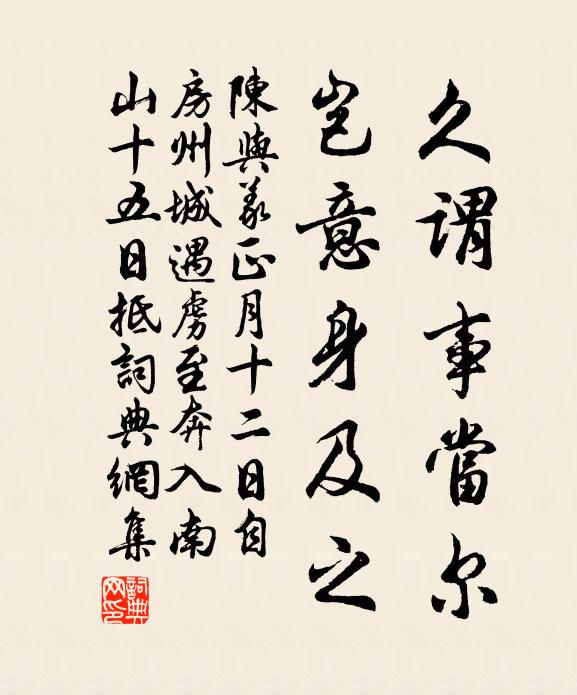 久謂事當尔
豈意身及之
陳與義正月十二日自
房州城遇虜至奔入南
山十五日抵詞典網集
詞典
网印